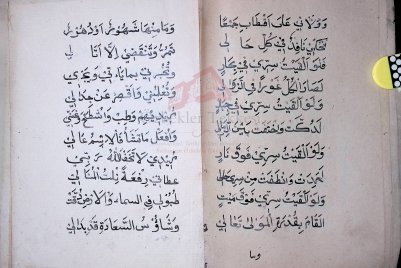 وولاني على اقطاب جمعا
فحكمي نافذ في كل حالي
فلو القيت سري في بحار
لصار الكل غورا في الزوالي
ولو القيت سري في جبال
لدكت واختفت بين الرمالي
ولو القيت سري فوق نار
لخمدت وانطفت من سر حالي
ولو القيت سري فوق ميت
لقام بقدرة المولى تعالي
وما
وما منها شهور او دهور
تمر وتنقضي الا اتا لي
وتخبرني بما ياتي ويجري
وتعلمني فاقصر عن جدالي
مريدي هم وطب واشطح وغني
وافعل ما تشا فالاسم عالي
مريدي لا تخف الله ربي
عطاني رفعة نلت المنالي
طبولي في السماء والارض دقت
وشاؤس السعادة قد بدالي